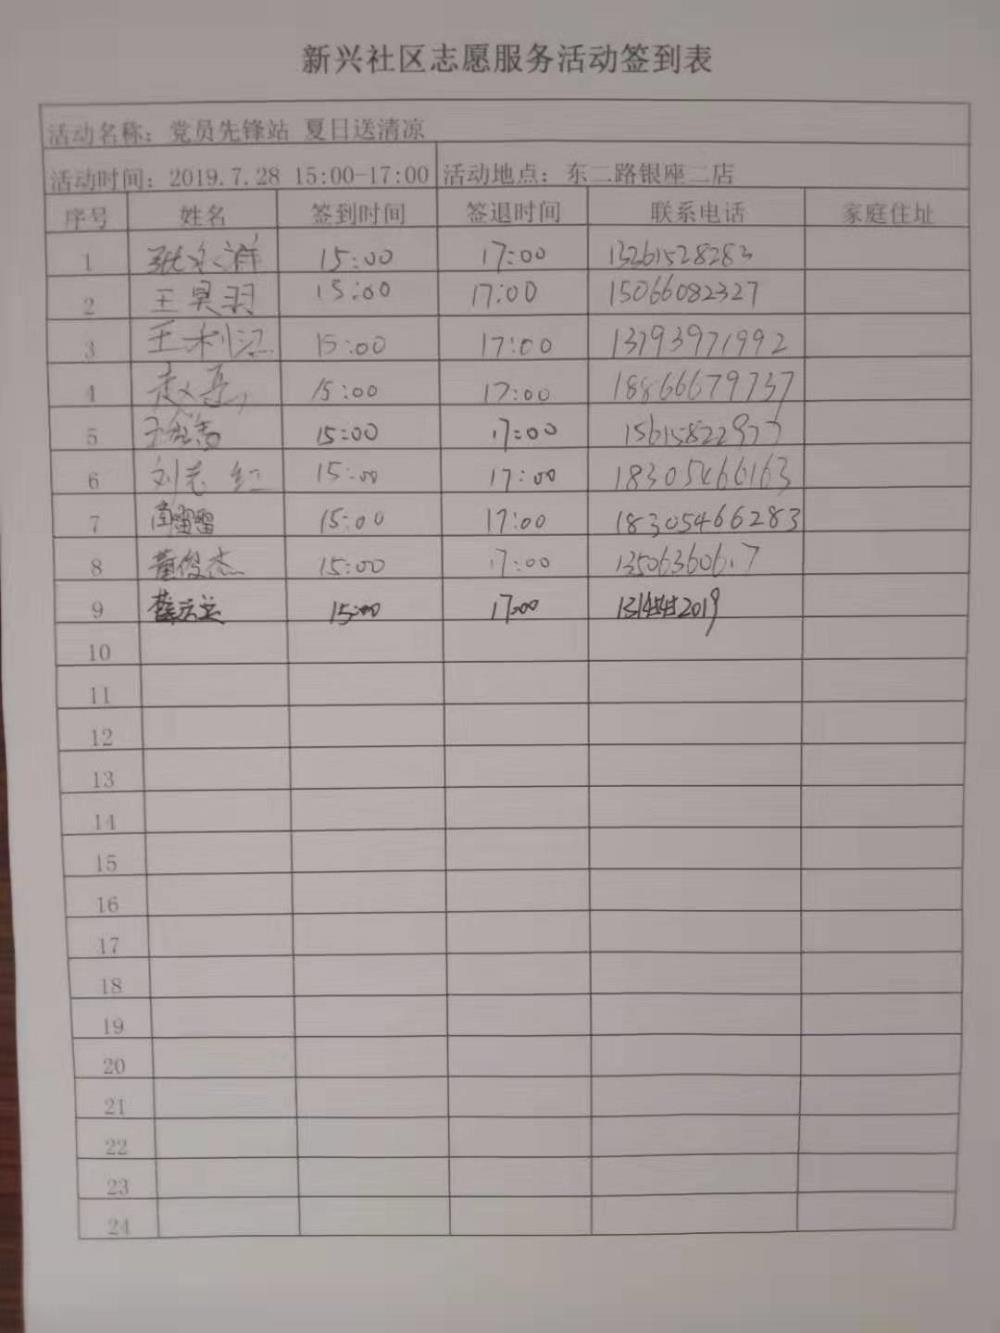 新兴社区志愿服务活动签到表
活动名称：党员先锋站 夏日送清凉
活动时间：2019.7.28 15:00-17:00 活动地点：东二路银座二店
序号 姓名 签到时间 签退时间 联系电话 家庭住址
1 15:00 17:00 13261528283
2 王昊羽 15:00 17:00 15066082327
3 王利江 15:00 17:00 13793971992
4 15:00 17:00 18866679737
5 15:00 17:00
6 刘志红 15:00 17:00 18305466163
7 雷雷 15:00 17:00 18305466283
8 董俊杰 15:00 17:00
9 15:00 17:00
10
11
12
13
14
15
16
17
18
19
20
21
22
23
24